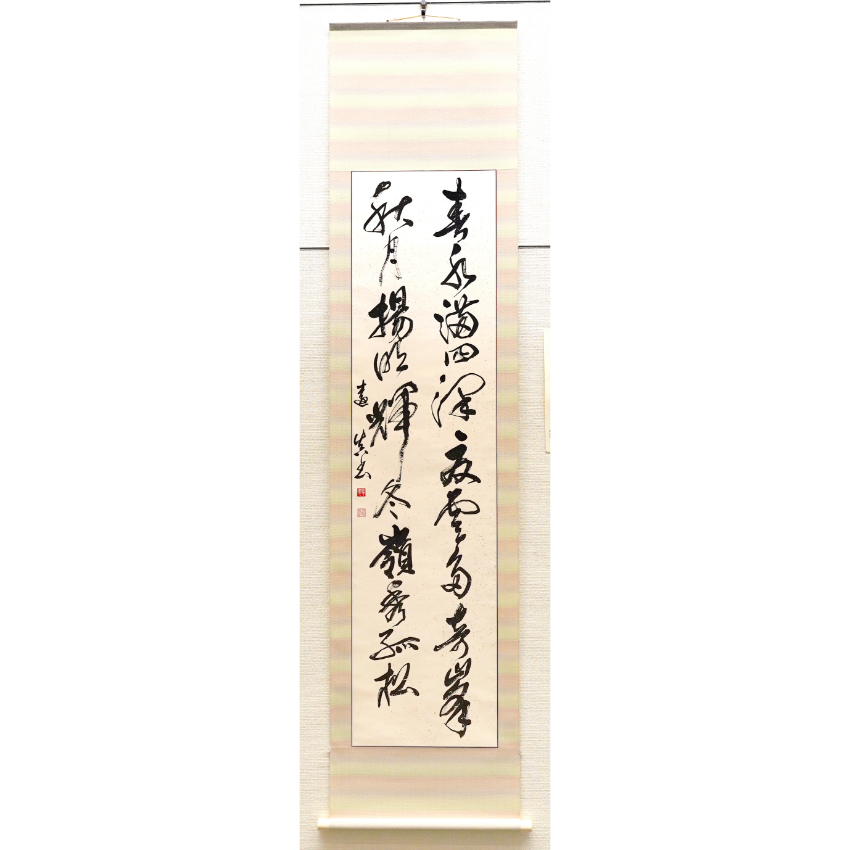 春水満四澤夏雲多奇峯
秋月揚明輝冬嶺秀孤松